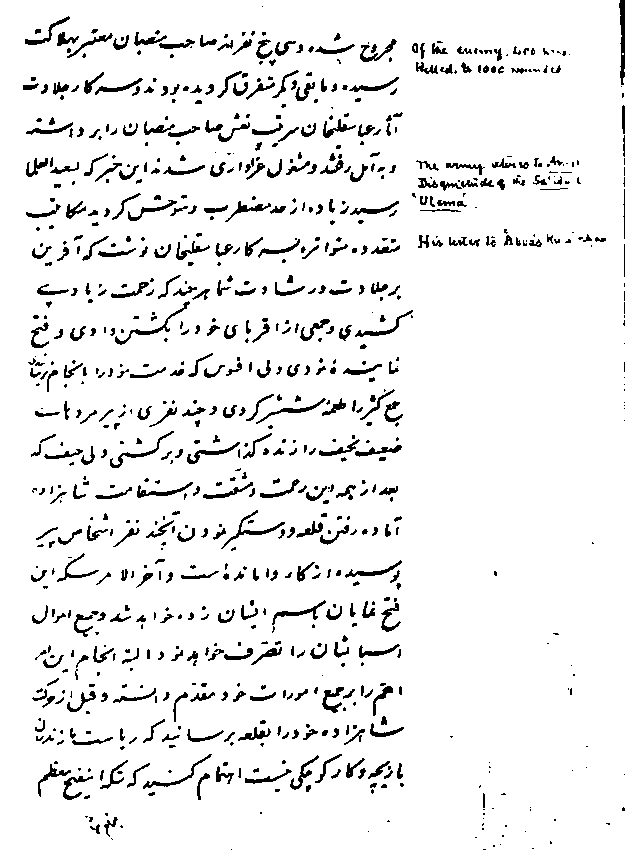 مجروح شده و سی پنج نفر از صاحب منصبان معتبر بهلاکت
رسیده و مابقی دیگر متفرق گردیده بودند و سه کار جلادت
آثار عباسقلیخان سرتیپ نعش صاحب منصبان را برداشته
و به آمل رفتند و مشغول عزاداری شدند این خبر که بسعید العلما
رسید زیاده از حد مضطرب و متوحش گردید مکاتیب
متعدده متواتره بسه کار عباسقلیخان نوشت که آفرین
بر جلادت و رشادت شما هر چند که زحمت زیاد پی
کشیدی و جمعی از اقربای خود را بکشتن دادی و فتح
نماینده نمودی ولی افسوس که خدمت خود را بانجام نرساندی
جمع کثیر را طعمه شمشیر کردی و چند نفری از پیر مردهای
ضعیف نحیف را زنده گذاشتی و برگشتی ولی حیف که
بعد از همه این زحمت و مشقت و استقامت شاهزاده
آماده رفتن قلعه و دستگیر نمودن آنچند نفر اشخاص پیر
پوسیده از کار وامانده است و آخر الامر سکه این
فتح نمایان باسم ایشان زده خواهد شد و جمیع اموال
اسبابشان را تصرف خواهد نمود البته انجام این امر
اهم را بر جمیع امورات خود مقدم دانسته و قبل از حرکت
شاهزاده خود را بقلعه برسانید که ریاست مازندران
بازیچه و کار کوچکی نیست اهتمام کنید که تنگه اینفتح معظم
Of the enemy, 400 were
killed, & 1000 wounded
The army retires to Amul
Disquietude of the Sa'idu'l
'Ulamá.
His letter to 'Abbás Kuli Khan